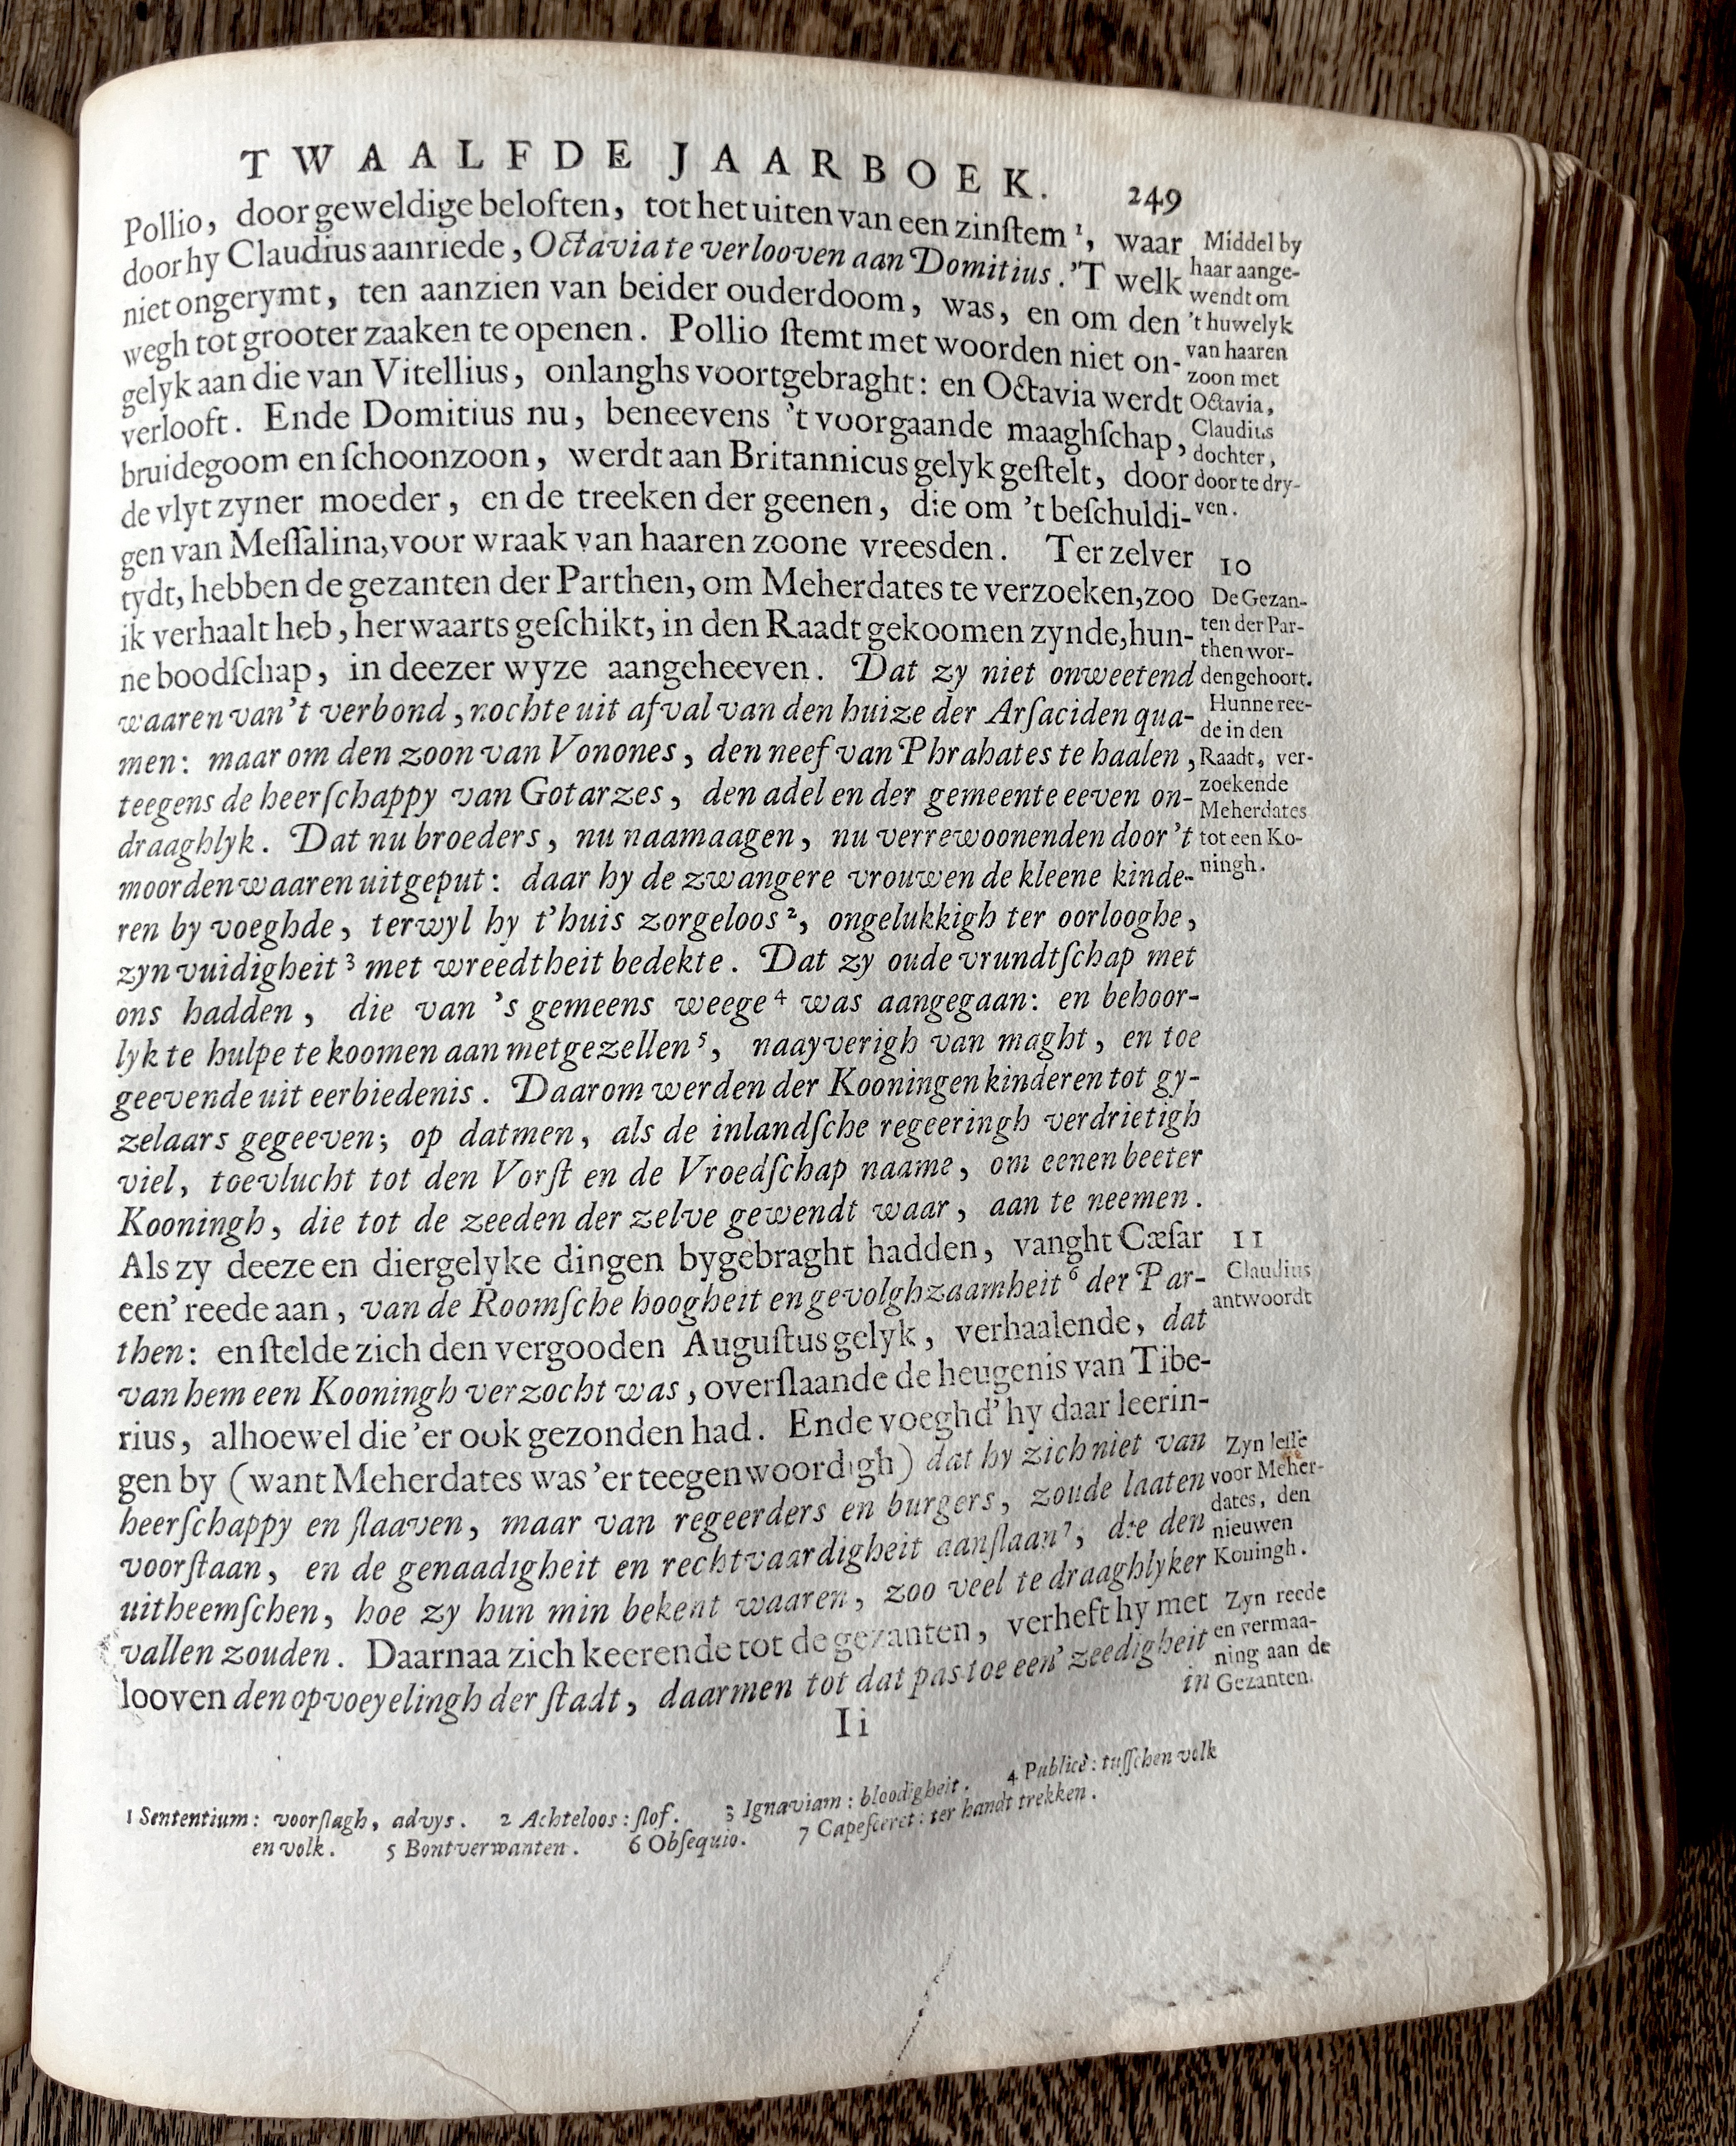 TWAALFDE JAARBOEK. 249
Pollio, door geweldige beloften, tot het uiten van een zinſtem ¹, waar
door hy Claudius aanriede, Octavia te verlooven aan Domitius. 'T welk
niet ongerymt, ten aanzien van beider ouderdoom, was, en om den
wegh tot grooter zaaken te openen. Pollio ſtemt met woorden niet on-
gelyk aan die van Vitellius, onlanghs voortgebraght: en Octavia werdt
verlooft. Ende Domitius nu, beneevens 't voorgaande maaghſchap,
bruidegoom en ſchoonzoon, werdt aan Britannicus gelyk geſtelt, door
de vlyt zyner moeder, en de treeken der geenen, die om 't beſchuldi-
gen van Meſſalina, voor wraak van haaren zoone vreesden. Ter zelver
tydt, hebben de gezanten der Parthen, om Meherdates te verzoeken, zoo
ik verhaalt heb, herwaarts geſchikt, in den Raadt gekoomen zynde, hun-
ne boodſchap, in deezer wyze aangeheeven. Dat zy niet onweetend
waaren van 't verbond, nochte uit afval van den huize der Arſaciden qua-
men: maar om den zoon van Vonones, den neef van Phrahates te haalen,
teegens de heerſchappy van Gotarzes, den adel en der gemeente eeven on-
draaghlyk. Dat nu broeders, nu naamaagen, nu verrewoonenden door 't
moorden waaren uitgeput: daar hy de zwangere vrouwen de kleene kinde-
ren by voeghde, terwyl hy t'huis zorgeloos ², ongelukkigh ter oorlooghe,
zyn vuidigheit ³ met wreedtheit bedekte. Dat zy oude vrundtſchap met
ons hadden, die van 's gemeens weege ⁴ was aangegaan: en behoor-
lyk te hulpe te koomen aan metgezellen ⁵, naayverigh van maght, en toe
geevende uit eerbiedenis. Daarom werden der Kooningen kinderen tot gy-
zelaars gegeeven; op datmen, als de inlandſche regeeringh verdrietigh
viel, toevlucht tot den Vorſt en de Vroedſchap naame, om eenen beeter
Kooningh, die tot de zeeden der zelve gewendt waar, aan te neemen.
Als zy deeze en diergelyke dingen bygebraght hadden, vanght Cæſar
een' reede aan, van de Roomſche hoogheit en gevolghzaamheit ⁶ der Par-
then: en ſtelde zich den vergooden Auguſtus gelyk, verhaalende, dat
van hem een Kooningh verzocht was, overſlaande de heugenis van Tibe-
rius, alhoewel die 'er ook gezonden had. Ende voeghd' hy daar leerin-
gen by (want Meherdates was 'er teegenwoordigh) dat hy zich niet van
heerſchappy en ſlaaven, maar van regeerders en burgers, zoude laaten
voorſtaan, en de genaadigheit en rechtvaardigheit aanſlaan ⁷, die den
uitheemſchen, hoe zy hun min bekent waaren, zoo veel te draaghlyker
vallen zouden. Daarnaa zich keerende tot de gezanten, verheft hy met
looven den opvoeyelingh der ſtadt, daarmen tot dat pas toe een' zeedigheit
in
Ii
Middel by
haar aange-
wendt om
't huwelyk
van haaren
zoon met
Octavia,
Claudius
dochter,
door te dry-
ven.
10
De Gezan-
ten der Par-
then wor-
den gehoort.
Hunne ree-
de in den
Raadt, ver-
zoekende
Meherdates
tot een Ko-
ningh.
11
Claudius
antwoordt
Zyn leſſe
voor Meher-
dates, den
nieuwen
Kouingh.
Zyn reede
en vermaa-
ning aan de
Gezanten.
1 Sententium: voorſlagh, advys. 2 Achteloos: ſlof. 3 Ignaviam: bloodigheit. 4 Publicè: tuſſchen volk
en volk. 5 Bontverwanten. 6 Obſequio. 7 Capeſceret: ter handt trekken.